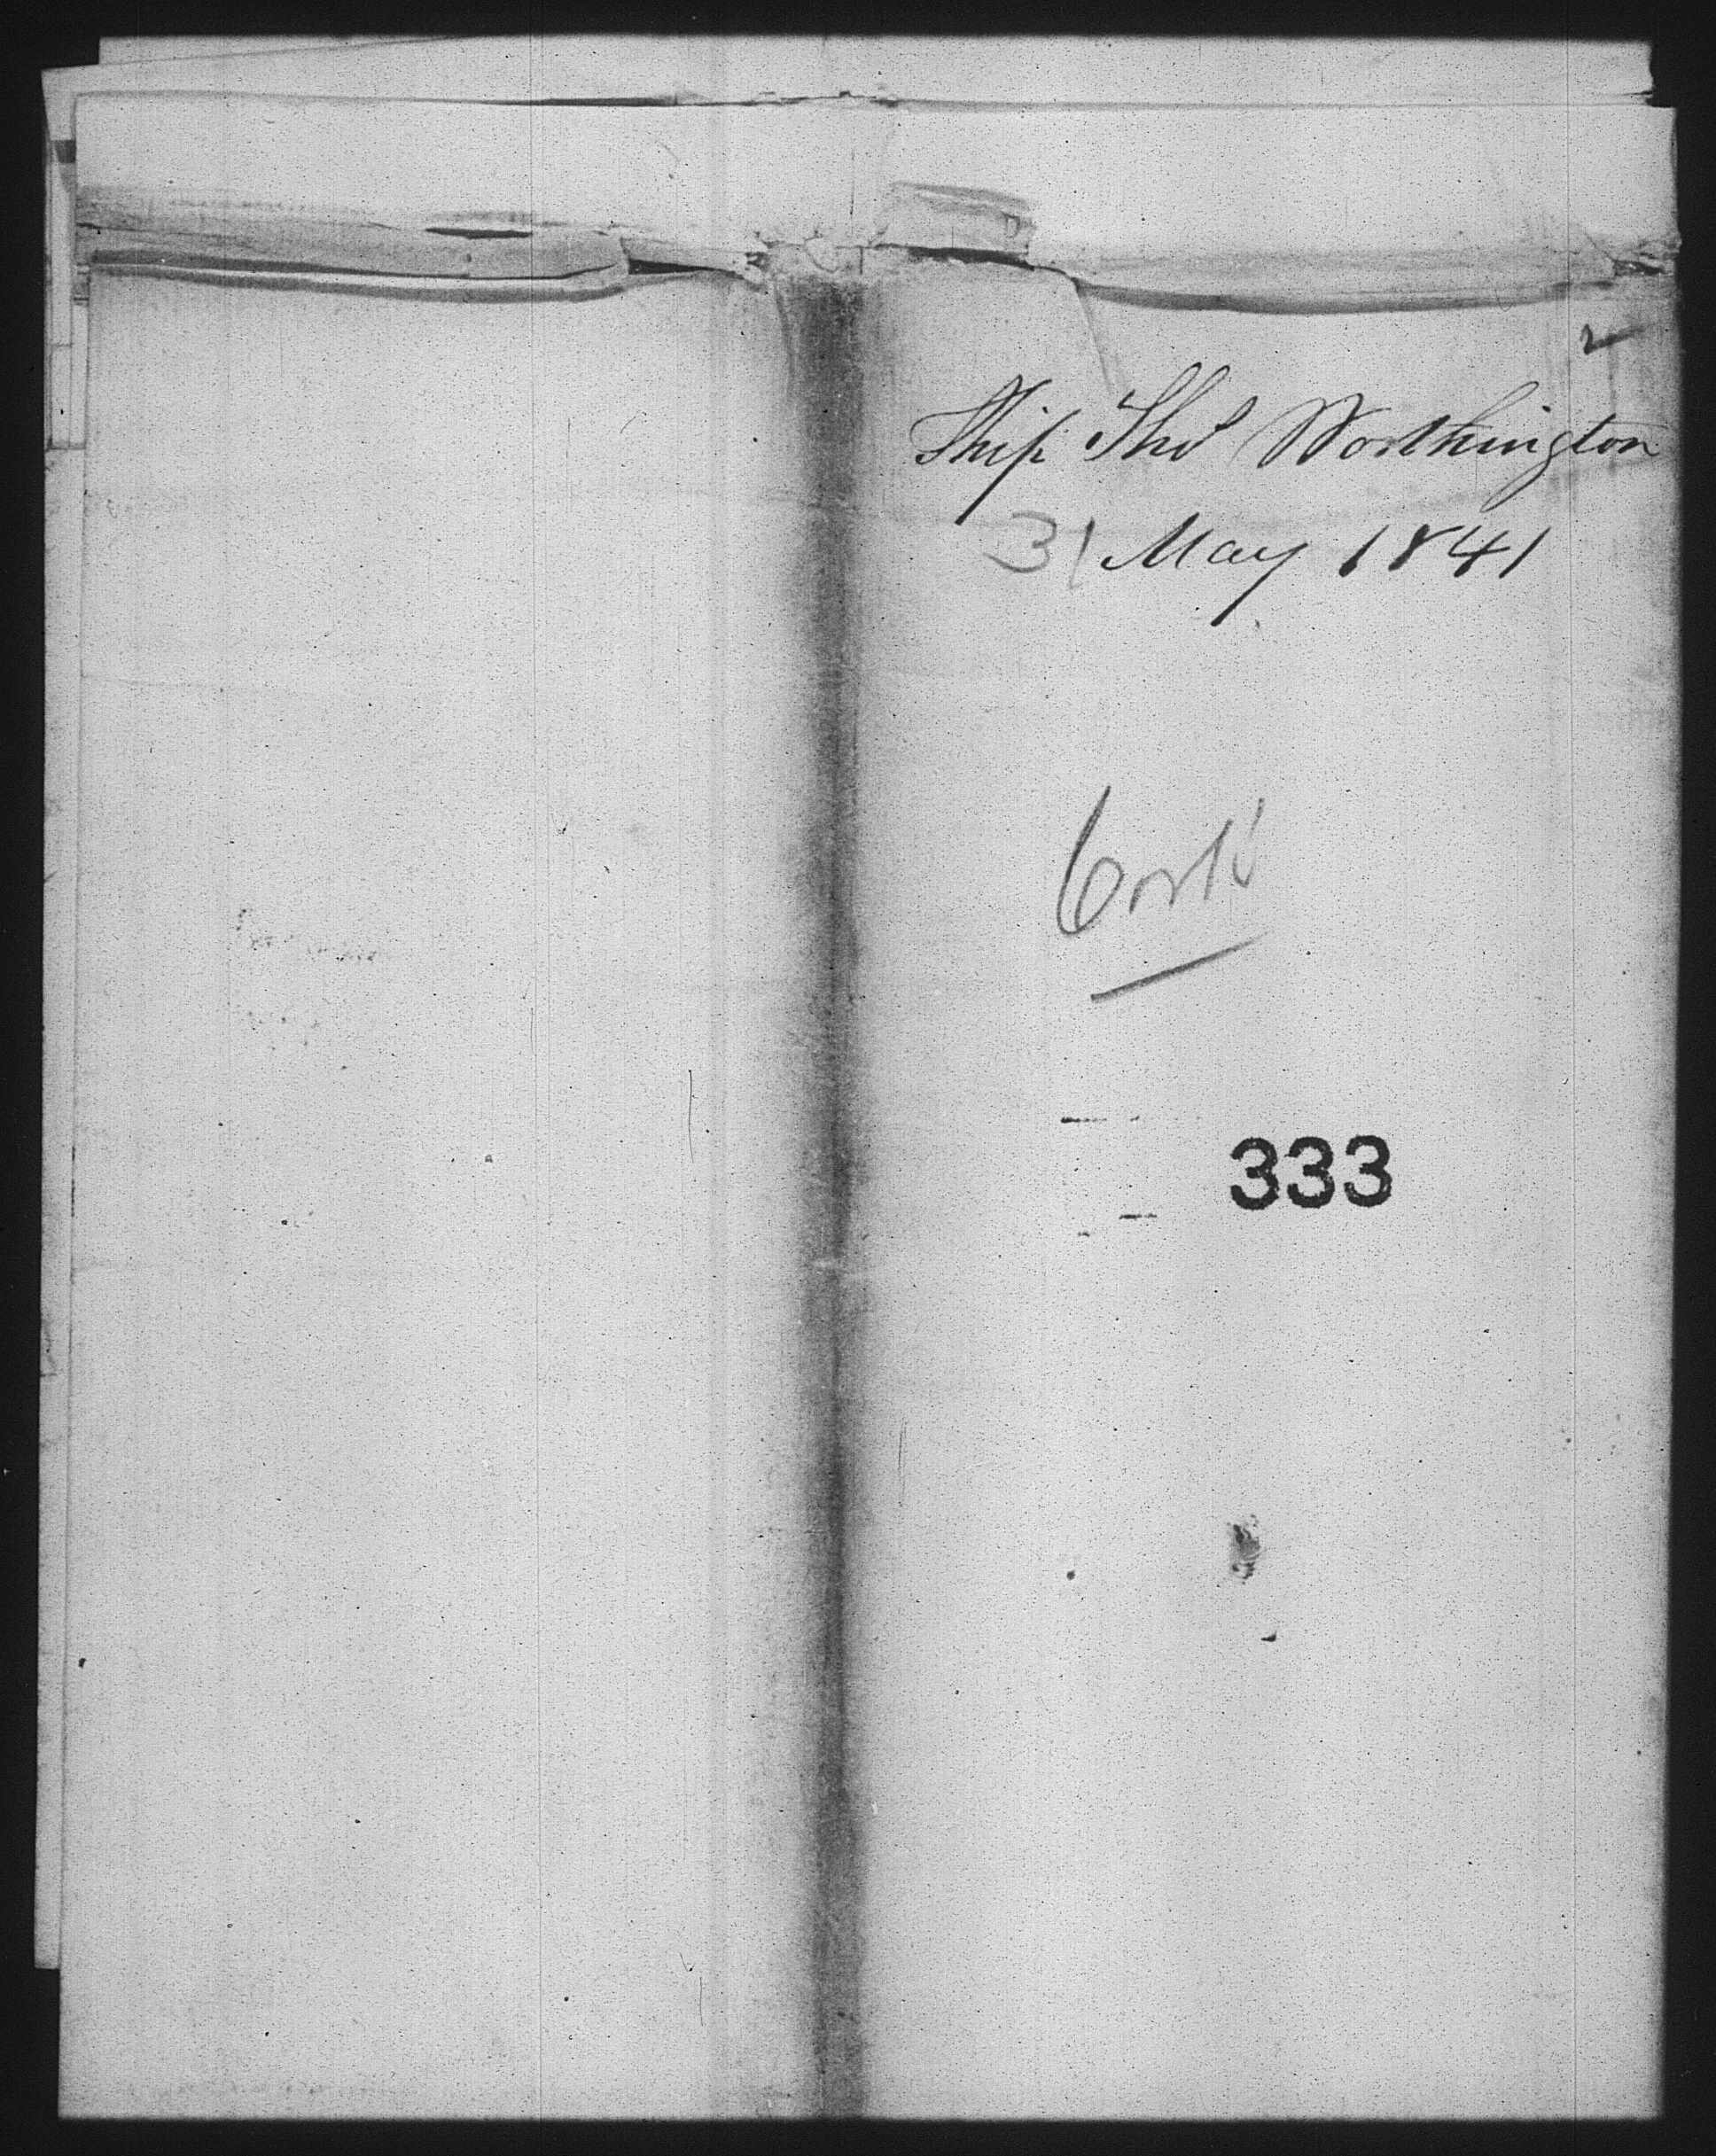 Ship Thos Worthington
31 May 1841
333